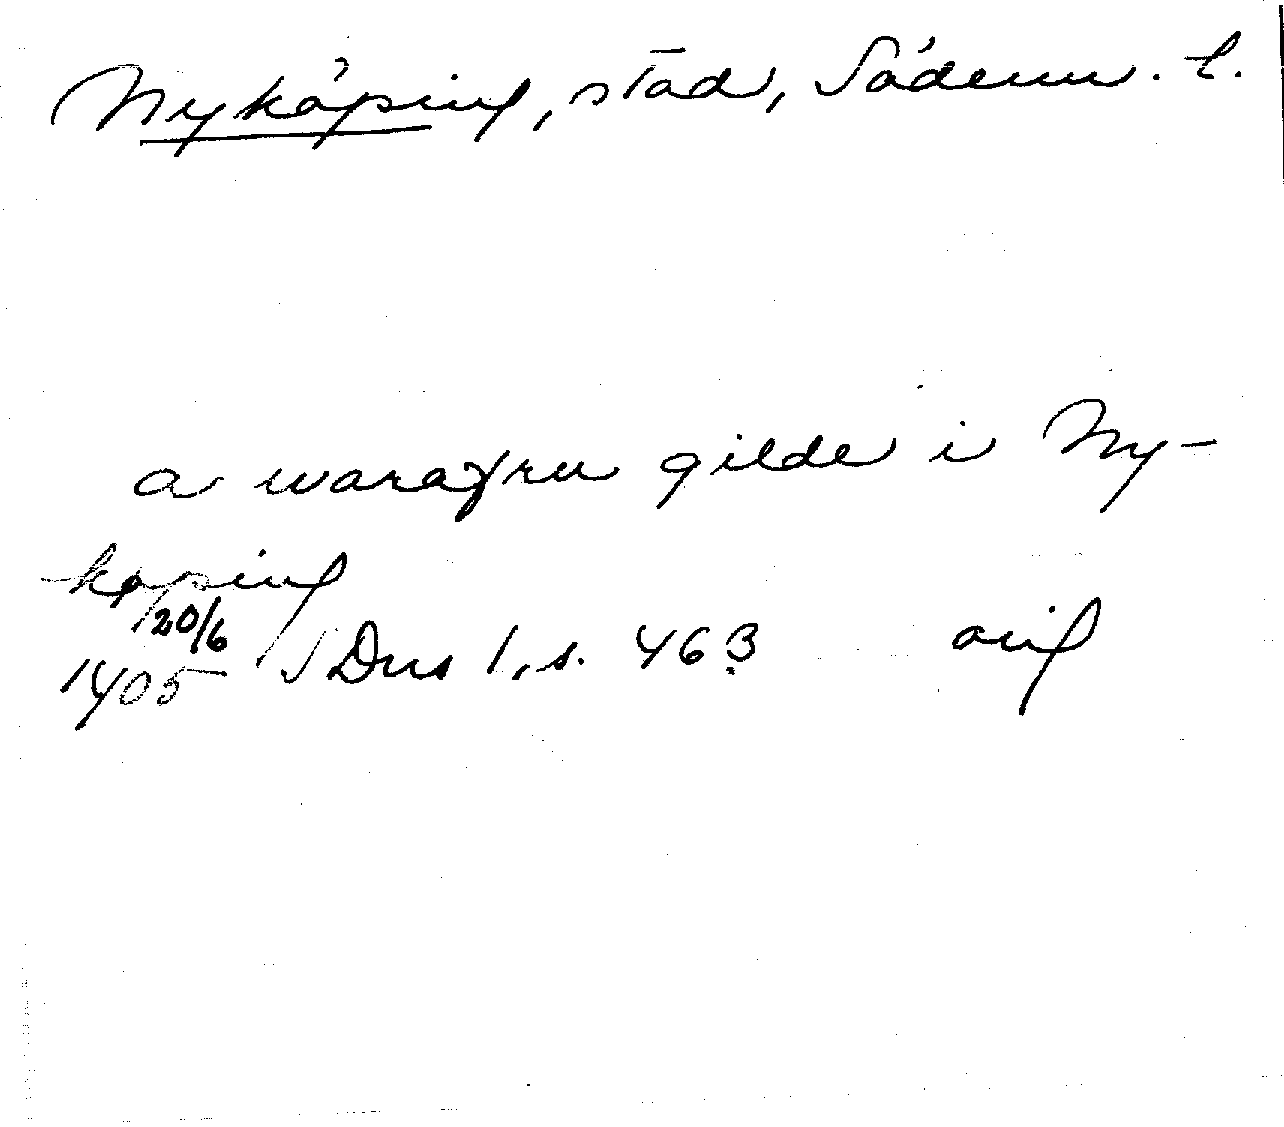 Nyköping, stad, Söderm. l.
a warafru gilde i Ny-
köping
20/6
1405 SDns 1, s. 463 orig